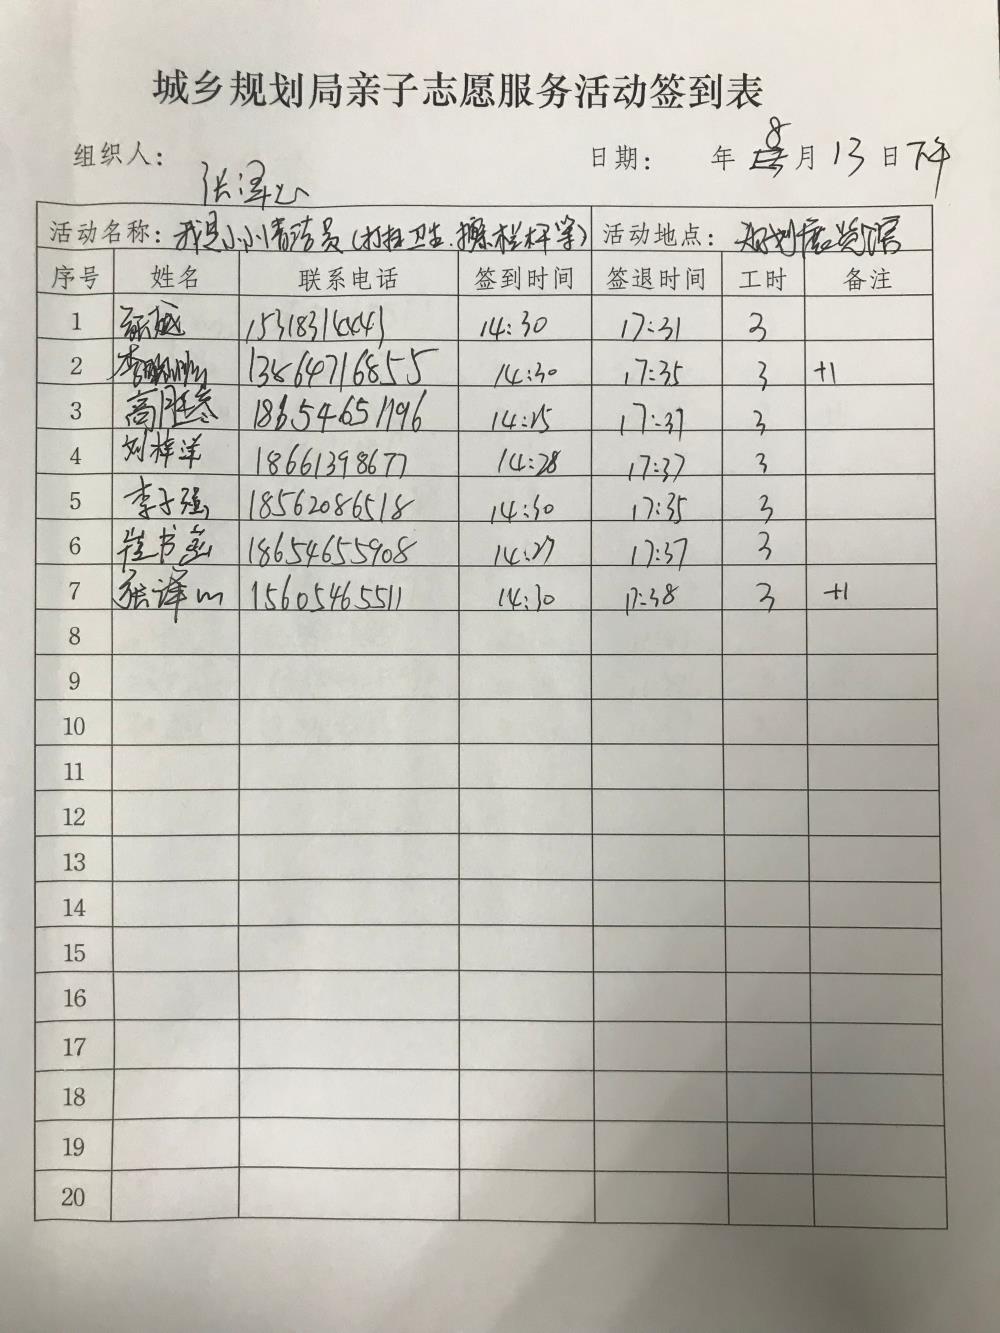 城乡规划局亲子志愿服务活动签到表
组织人： 日期： 年 8 月 13 日 下午
张泽山
活动名称：我是小小清洁员(打扫卫生、擦栏杆等) 活动地点：
序号 姓名 联系电话 签到时间 签退时间 工时 备注
1 14:30 17:31 3
2 13864716855 14:30 17:35 3 +1
3 高 18654651796 14:25 17:37 3
4 刘梓洋 18661398677 14:28 17:37 3
5 李子强 18562086518 14:30 17:35 3
6 崔书 18654655908 14:27 17:37 3
7 张泽山 15605465511 14:30 17:38 3 +1
8
9
10
11
12
13
14
15
16
17
18
19
20